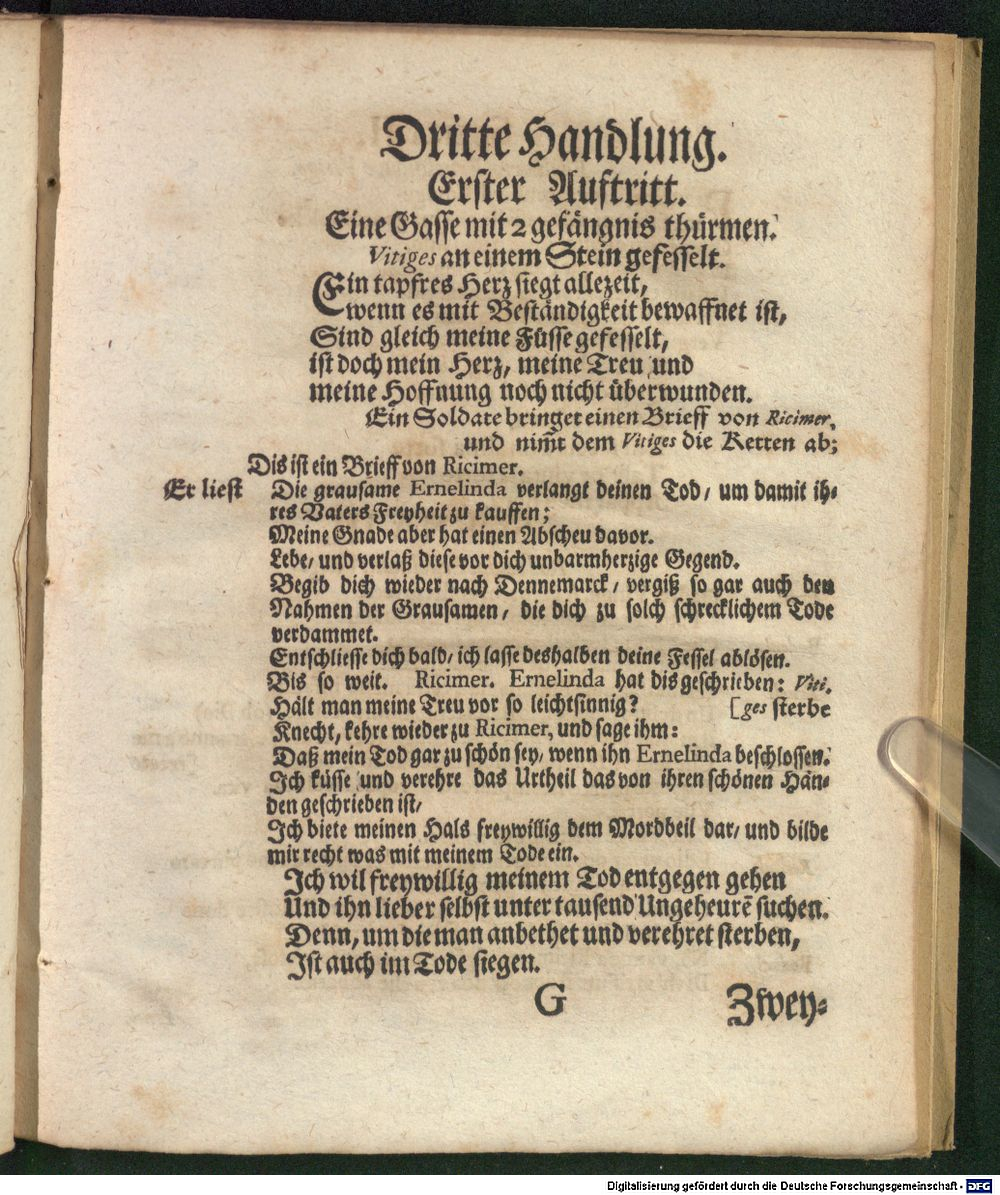 Dritte Handlung.
Erster Auftritt.
Eine Gasse mit 2 gefängnis thürmen.
Vitiges an einem Stein gefesselt.
Ein tapfres Herz siegt allezeit,
wenn es mit Beständigkeit bewaffnet ist,
Sind gleich meine Füsse gefesselt,
ist doch mein Herz, meine Treu und
meine Hoffnung noch nicht überwunden.
Ein Soldate bringet einen Brieff von Ricimer,
und nim̃t dem Vitiges die Ketten ab;
Dis ist ein Brieff von Ricimer.
Er liest Die grausame Ernelinda verlangt deinen Tod/ um damit ih-
res Vaters Freyheit zu kauffen;
Meine Gnade aber hat einen Abscheu davor.
Lebe/ und verlaß diese vor dich unbarmherzige Gegend.
Begib dich wieder nach Dennemarck/ vergiß so gar auch den
Nahmen der Grausamen/ die dich zu solch schrecklichem Tode
verdammet.
Entschliesse dich bald/ ich lasse deshalben deine Fessel ablösen.
Bis so weit. Ricimer. Ernelinda hat dis geschrieben: Viti.
Hält man meine Treu vor so leichtsinnig? [ges sterbe
Knecht, kehre wieder zu Ricimer, und sage ihm:
Daß mein Tod gar zu schön sey/ wenn ihn Ernelinda beschlossen.
Ich küsse und verehre das Urtheil das von ihren schönen Hän-
den geschrieben ist/
Ich biete meinen Hals freywillig dem Mordbeil dar/ und bilde
mir recht was mit meinem Tode ein.
Ich wil freywillig meinem Tod entgegen gehen
Und ihn lieber selbst unter tausend Ungeheurẽ suchen.
Denn, um die man anbethet und verehret sterben,
Ist auch im Tode siegen.
G Zwey-
Digitalisierung gefördert durch die Deutsche Forschungsgemeinschaft - DFG